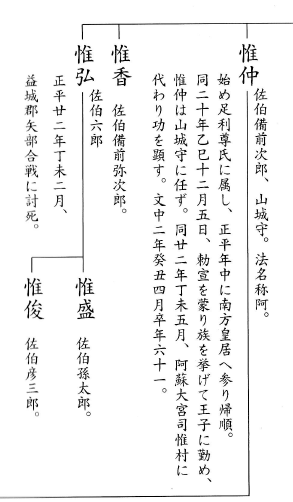 惟仲
佐伯備前次郎、山城守。法名称阿。
始め足利尊氏に属し、正平年中に南方皇居へ参り帰順。
同二十年乙巳十二月五日、勅宣を蒙り族を挙げて王子に勤め、
惟仲は山城守に任ず。同廿二年丁未五月、阿蘇大宮司惟村に
代わり功を顕す。文中二年癸丑四月卒年六十一。
惟香
佐伯備前弥次郎。
惟弘
佐伯六郎
正平廿二年丁未二月、
益城郡矢部合戦に討死。
惟盛
佐伯孫太郎。
惟俊
佐伯彦三郎。